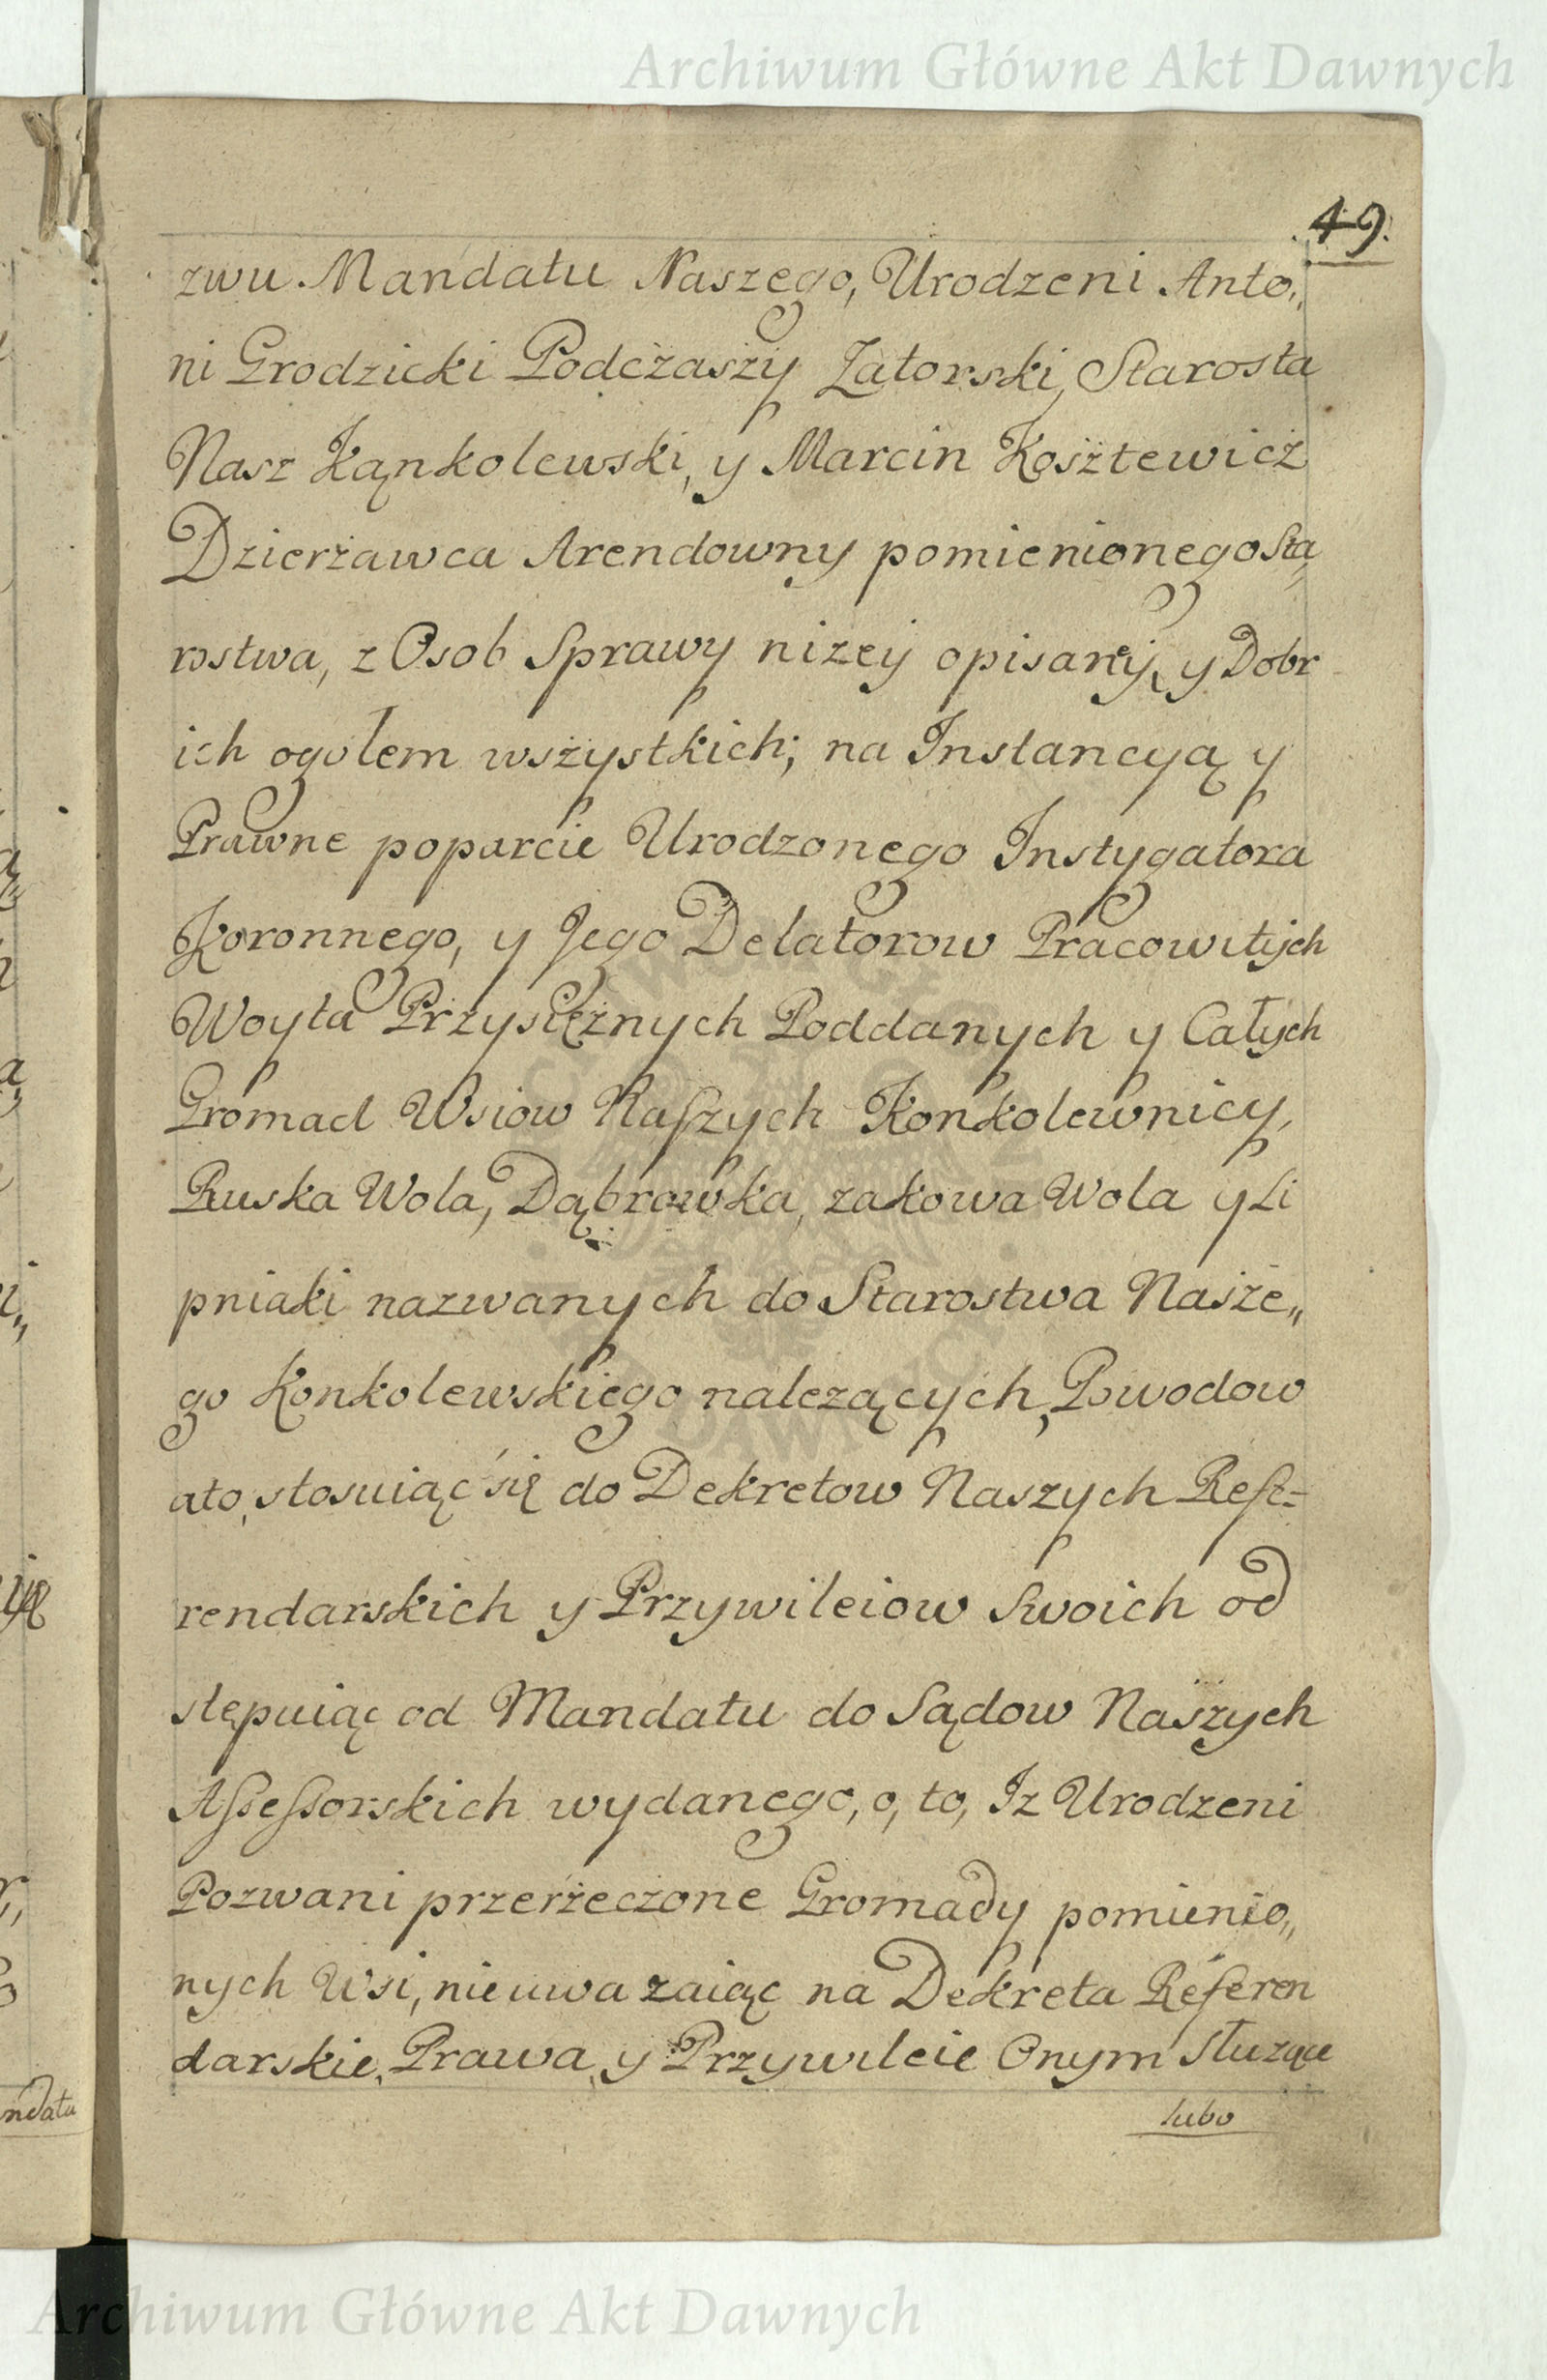 Archiwum Główne Akt Dawnych
49.
zwu Mandatu Naszego, Urodzeni Anto„
ni Grodzicki Podczaszy Zatorski, Starosta
Nasz Kąnkolewski, y Marcin Kosztewicz
Dzierżawca Arendowny pomienionego Sta„
rostwa, z Osob Sprawy niżey opisaney, y Dobr
ich ogołem wszystkich; na Instancyą y
Prawne poparcie Urodzonego Instygatora
Koronnego, y Jego Delatorow Pracowitych
Woyta Przysiężnych Poddanych y Całych
Gromad Wsiow Naszych Konkolewnicy,
Ruska Wola, Dąbrowka, zakowa Wola y Li
pniaki nazwanych do Starostwa Nasze„
go Konkolewskiego należących, Powodow
ato, stosuiąc się do Dekretow Naszych Refe=
rendarskich y Przywileiow Swoich od
stępuiąc od Mandatu do Sądow Naszych
Assessorskich wydanego, o, to, Iz Urodzeni
Pozwani przerzeczone Gromady pomienio„
nych Wsi, nieuwazaiąc na Dekreta Referen
darskie, Prawa, y Przywileie Onym Służące
lubo
ndatu
Archiwum Główne Akt Dawnych